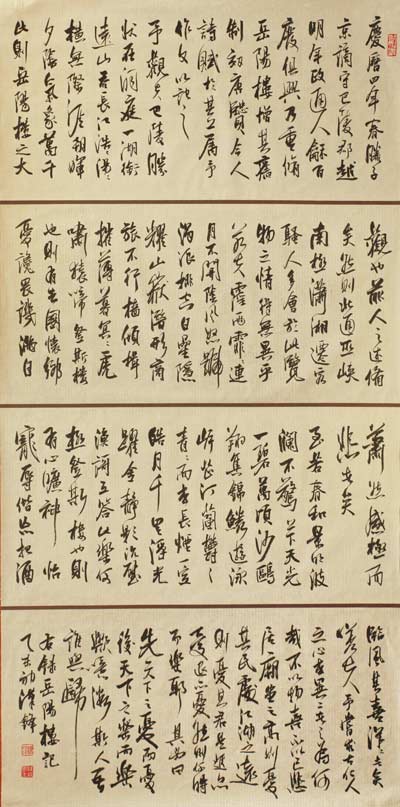 慶曆四年春滕子
京謫守巴陵郡越
明年政通人龢百
廢俱興乃重修
岳陽樓增其舊
制刻唐賢今人
詩賦於其上屬予
作文以記之
予觀夫巴陵勝
狀在洞庭一湖銜
遠山吞長江浩浩湯湯
橫無際涯朝暉
夕陰氣象萬千
此則岳陽樓之大
觀也前人之述備
矣然則北通巫峽
南極瀟湘遷客
騷人多會於此覽
物之情得無異乎
若夫霪雨霏霏連
月不開陰風怒號
濁浪排空日星隱
耀山嶽潛形商
旅不行檣傾楫
摧薄暮冥冥虎
嘯猿啼登斯樓
也則有去國懷鄉
憂讒畏譏滿目
蕭然感極而
悲者矣
至若春和景明波
瀾不驚上下天光
一碧萬頃沙鷗
翔集錦鱗游泳
岸芷汀蘭鬱鬱
青青而或長煙一空
皓月千里浮光
躍金靜影沉璧
漁歌互答此樂何
極登斯樓也則
有心曠神怡
寵辱偕忘把酒
臨風其喜洋洋者矣
嗟夫予嘗求古仁人
之心或異二者之為何
哉不以物喜不以己悲
居廟堂之高則憂
其民處江湖之遠
則憂其君是進亦
憂退亦憂然則何時
而樂耶其必曰
先天下之憂而憂
後天下之樂而樂
歟噫微斯人吾
誰與歸
右錄岳陽樓記